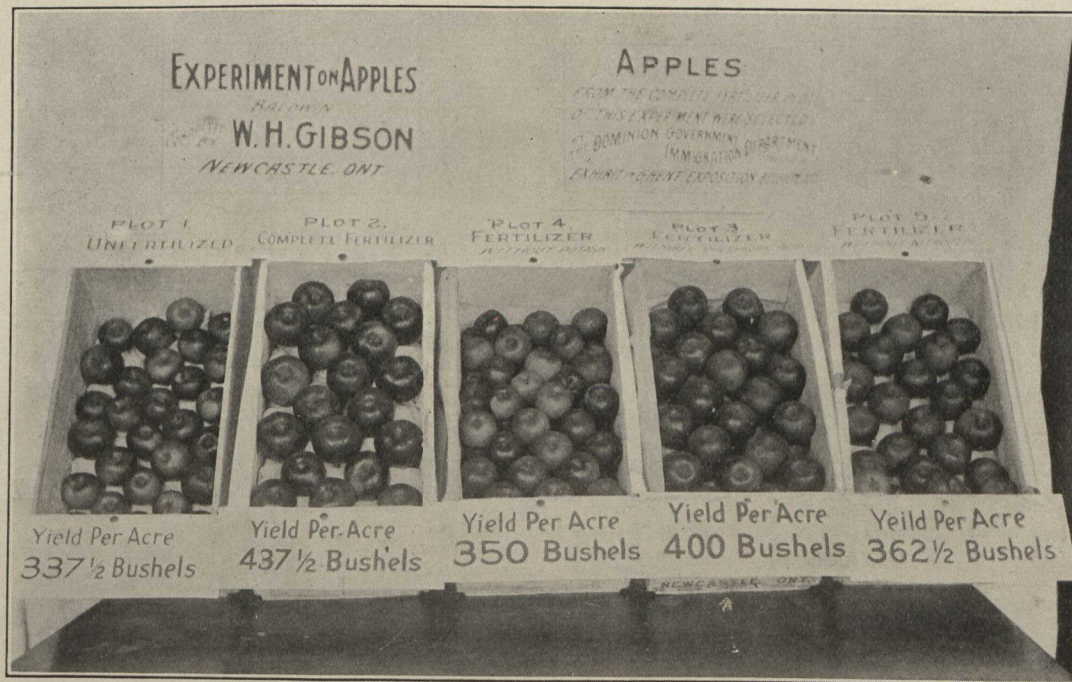 EXPERIMENT ON APPLES
BALDWIN
BY W.H. GIBSON
NEWCASTLE. ONT
APPLES
FROM THE COMPLETE FERTILIZER PLOT
OF THIS EXPERIMENT WERE SELECTED
DOMINION GOVERNMENT
IMMIGRATION DEPARTMENT
EXHIBIT GHENT EXPOSITION
PLOT 1.
UNFERTILIZED
PLOT 2.
COMPLETE FERTILIZER
PLOT 4.
FERTILIZER
WITHOUT POTASH
PLOT 3
FERTILIZER
WITHOUT
PLOT 5.
FERTILIZER
WITHOUT
Yield Per Acre
337½ Bushels
Yield Per Acre
437½ Bushels
Yield Per Acre
350 Bushels
Yield Per Acre
400 Bushels
Yeild Per Acre
362½ Bushels
NEWCASTLE. ONT.